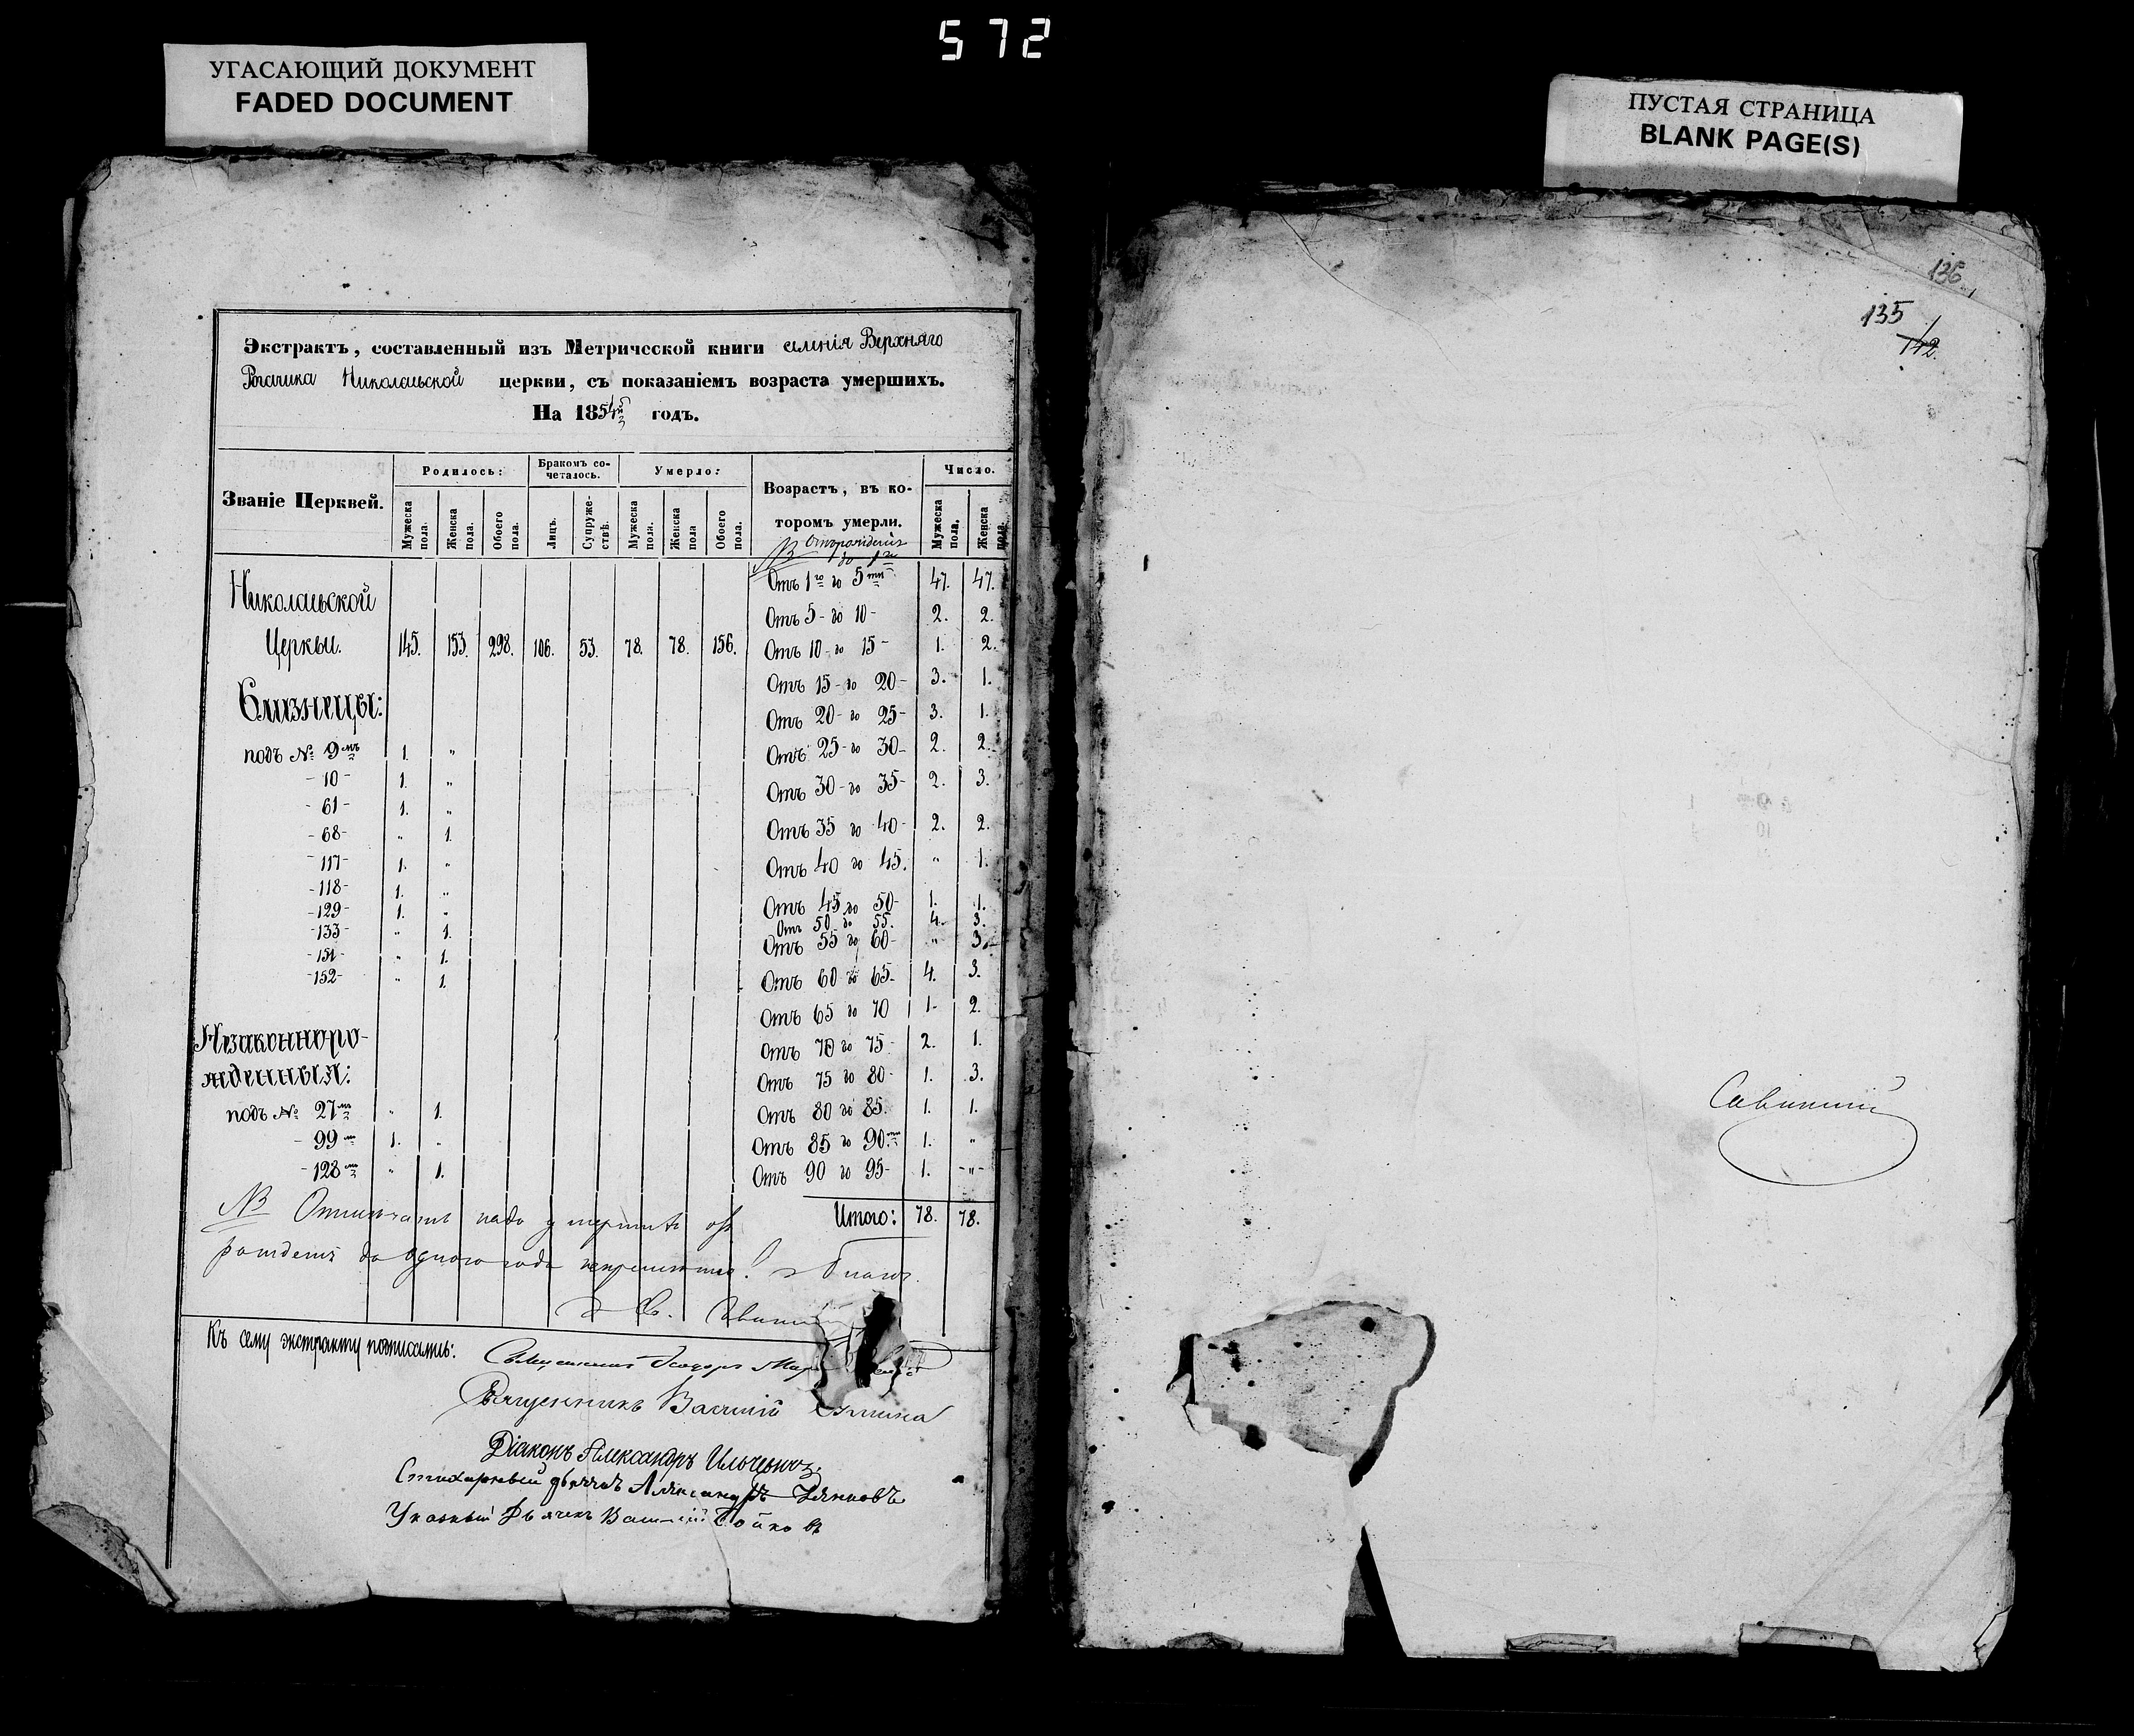 572
УГАСАЮЩИЙ ДОКУМЕНТ
FADED DOCUMENT
ПУСТАЯ СТРАНИЦА
BLANK PAGE(S)
Экстрактъ, составленный изъ Метрической книги селенія Верхняго
Рогачика Николаевской церкви, съ показаніемъ возраста умершихъ.
На 1854й годъ.
Званіе Церквей. Родилось: Бракомъ сочеталось. Умерло: Возрастъ, въ ко-
торомъ умерли. Число.
Мужеска пола. Женска пола. Обоего пола. Лицъ. Супружествъ. Мужеска пола. Женска пола Обоего пола. Мужеска пола. Женска пола.
NB Отъ рожденія до 1го
Николаевской Отъ 1го до 5ти 47. 47.
Отъ 5 - до 10 - 2. 2.
Церкви. 145. 153. 298. 106. 53. 78. 78. 156. Отъ 10 - до 15 - 1. 2.
Близнецы: Отъ 15 - до 20 - 3. 1.
Отъ 20 - до 25 - 3. 1.
подъ № 9мъ 1. " Отъ 25 - до 30 - 2. 2.
- 10 - 1. " Отъ 30 - до 35 - 2. 3.
- 61 - 1. "
- 68 - " 1. Отъ 35 до 40 - 2. 2.
- 117 - 1. " Отъ 40 до 45. " 1.
- 118 - 1. "
- 129 - 1. " Отъ 45 до 50 - 1. 1.
- 133 - " 1. Отъ 50 до 55. 4. 3.
- 151 - " 1. Отъ 55 до 60 - " 3.
- 152 - " 1. Отъ 60 до 65. 4. 3.
Отъ 65 до 70 1. 2.
Незаконноро- Отъ 70 до 75 - 2. 1.
жденныя: Отъ 75 до 80 - 1. 3.
подъ № 27мъ " 1. Отъ 80 до 85. 1. 1.
- 99мъ 1. " Отъ 85 до 90ти 1. "
- 128мъ " 1. Отъ 90 до 95 - 1. - " -
Итого: 78. 78.
NB надо
рожденія до одного года
Къ сему экстракту подписались:
Священникъ
Священникъ Василій
Діаконъ Александръ Ильчевичъ.
Стихарный дьячекъ Александръ
Указный Дьячекъ Василій Бойковъ
136
135
142
Савицкій